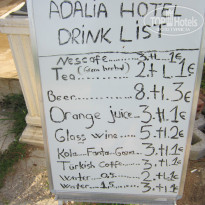 TopHotels
ADALIA HOTEL
DRINK LIST
Nescafe......3.tl.1€
Tea...... 2.tl.1€
Beer........8.tl.3€
Orange juice..3.tl.1€
Glass wine...5.tl.2€
Kola-Fanta-Gazoz..3.tl.1€
Turkish Coffe....3.tl.1€
Water 0.5......2.tl.1€
Water 1.5......3.tl.1€